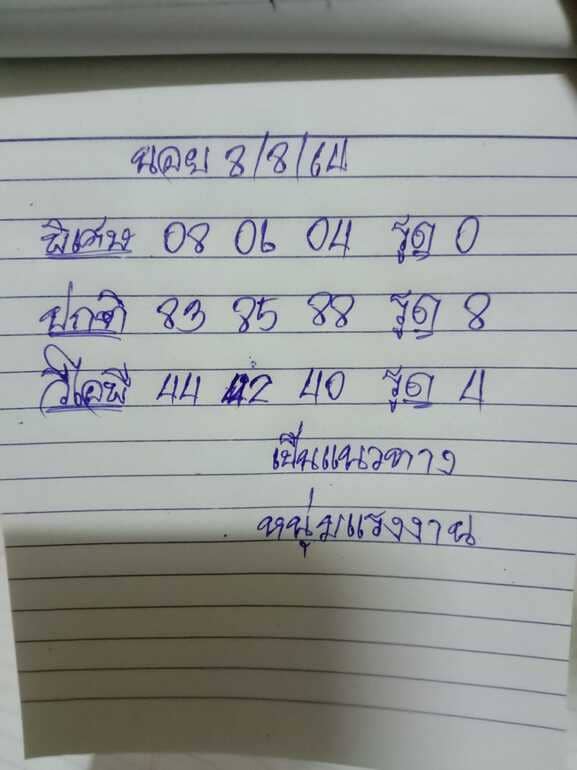 นอย 8/8/64
พิเศษ 08 06 04 รูด 0
ปกติ 83 85 88 รูด 8
วีไอพี 44 42 40 รูด 4
เป็นแนวทาง
หนุ่มแรงงาน